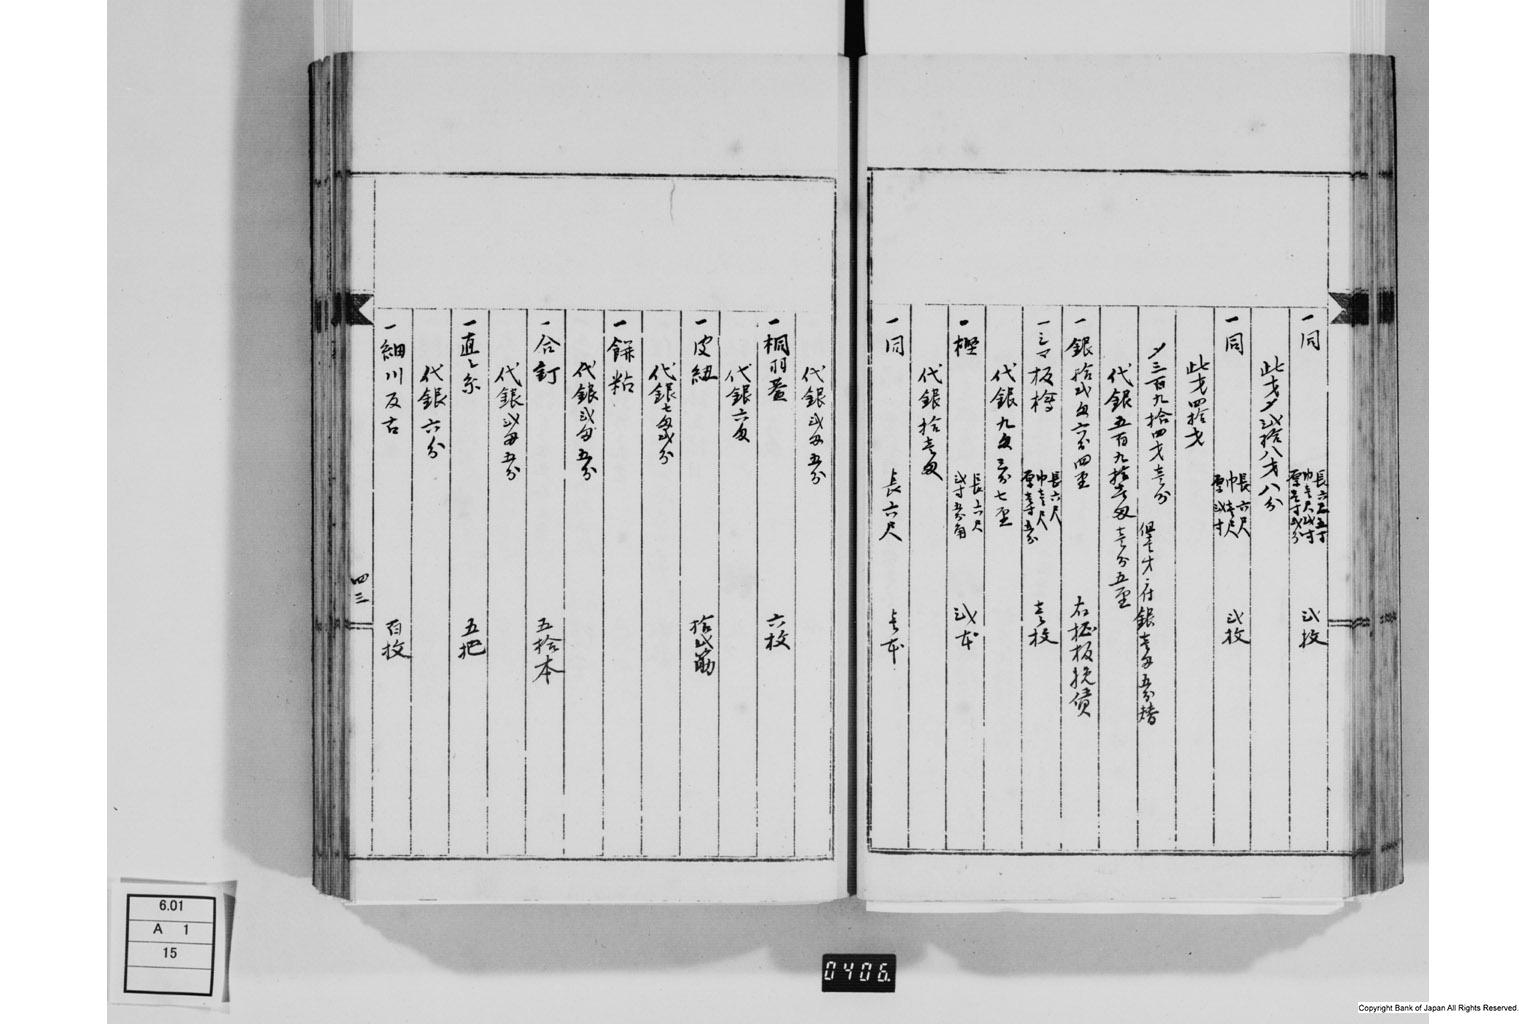 一同 長六尺五寸 巾壱尺弐寸 厚壱寸弐分 弐枚
此才〆弐拾八才八分
一同 長六尺 巾壱尺 厚弐寸 弐枚
此才四拾才
〆三百九拾四才壱分 但壱才ニ付銀壱匁五分替
代銀五百九拾壱匁壱分五厘
一銀拾弐匁六分四厘 右松板挽賃
一三マ板檜 長六尺 巾壱尺 厚壱寸五分 壱枚
代銀九匁三分七厘
一樫 長六尺 弐寸五分角 弐本
代銀拾壱匁
一同 長六尺 壱本
代銀弐匁五分
一桐羽蓋 六枚
代銀六匁
一皮紐 拾弐筋
代銀七匁弐分
一餅粘
代銀弐匁五分
一合釘 五拾本
代銀弐匁五分
一直し糸 五把
代銀六分
一細川反古 百枚
四三
6.01
A 1
15
0406.
Copyright Bank of Japan All Rights Reserved.